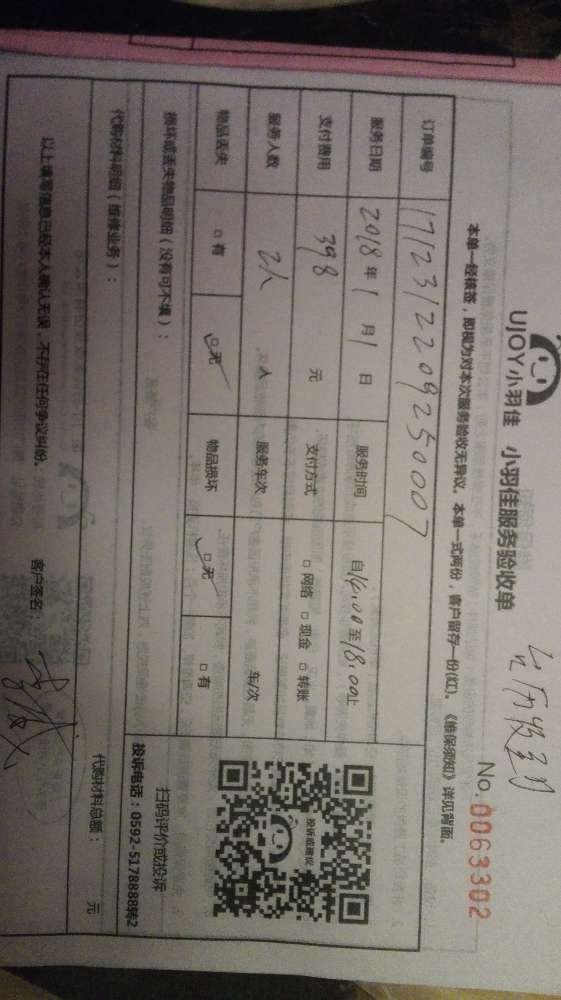 UJOY小羽佳 小羽佳服务验收单
No. 0063302
本单一经核签，即视为对本次服务验收无异议。本单一式两份，客户留存一份(红)。《维保须知》详见背面。
订单编号 1712312209250007
服务日期 2018年1月1日 服务时间 自16.00至18.00止
支付费用 398元 支付方式 □网络 □现金 □转账
服务人数 2人 人 服务车次 车/次
物品丢失 □有 □无 物品损坏 □无 □有
损坏或丢失物品明细（没有可不填）：
投诉或建议
扫码评价或投诉
投诉电话：0592-5178888转2
代购材料明细（维修业务）：
代购材料总额： 元
以上填写信息已经本人确认无误，不存在任何争议纠纷。 客户签名：